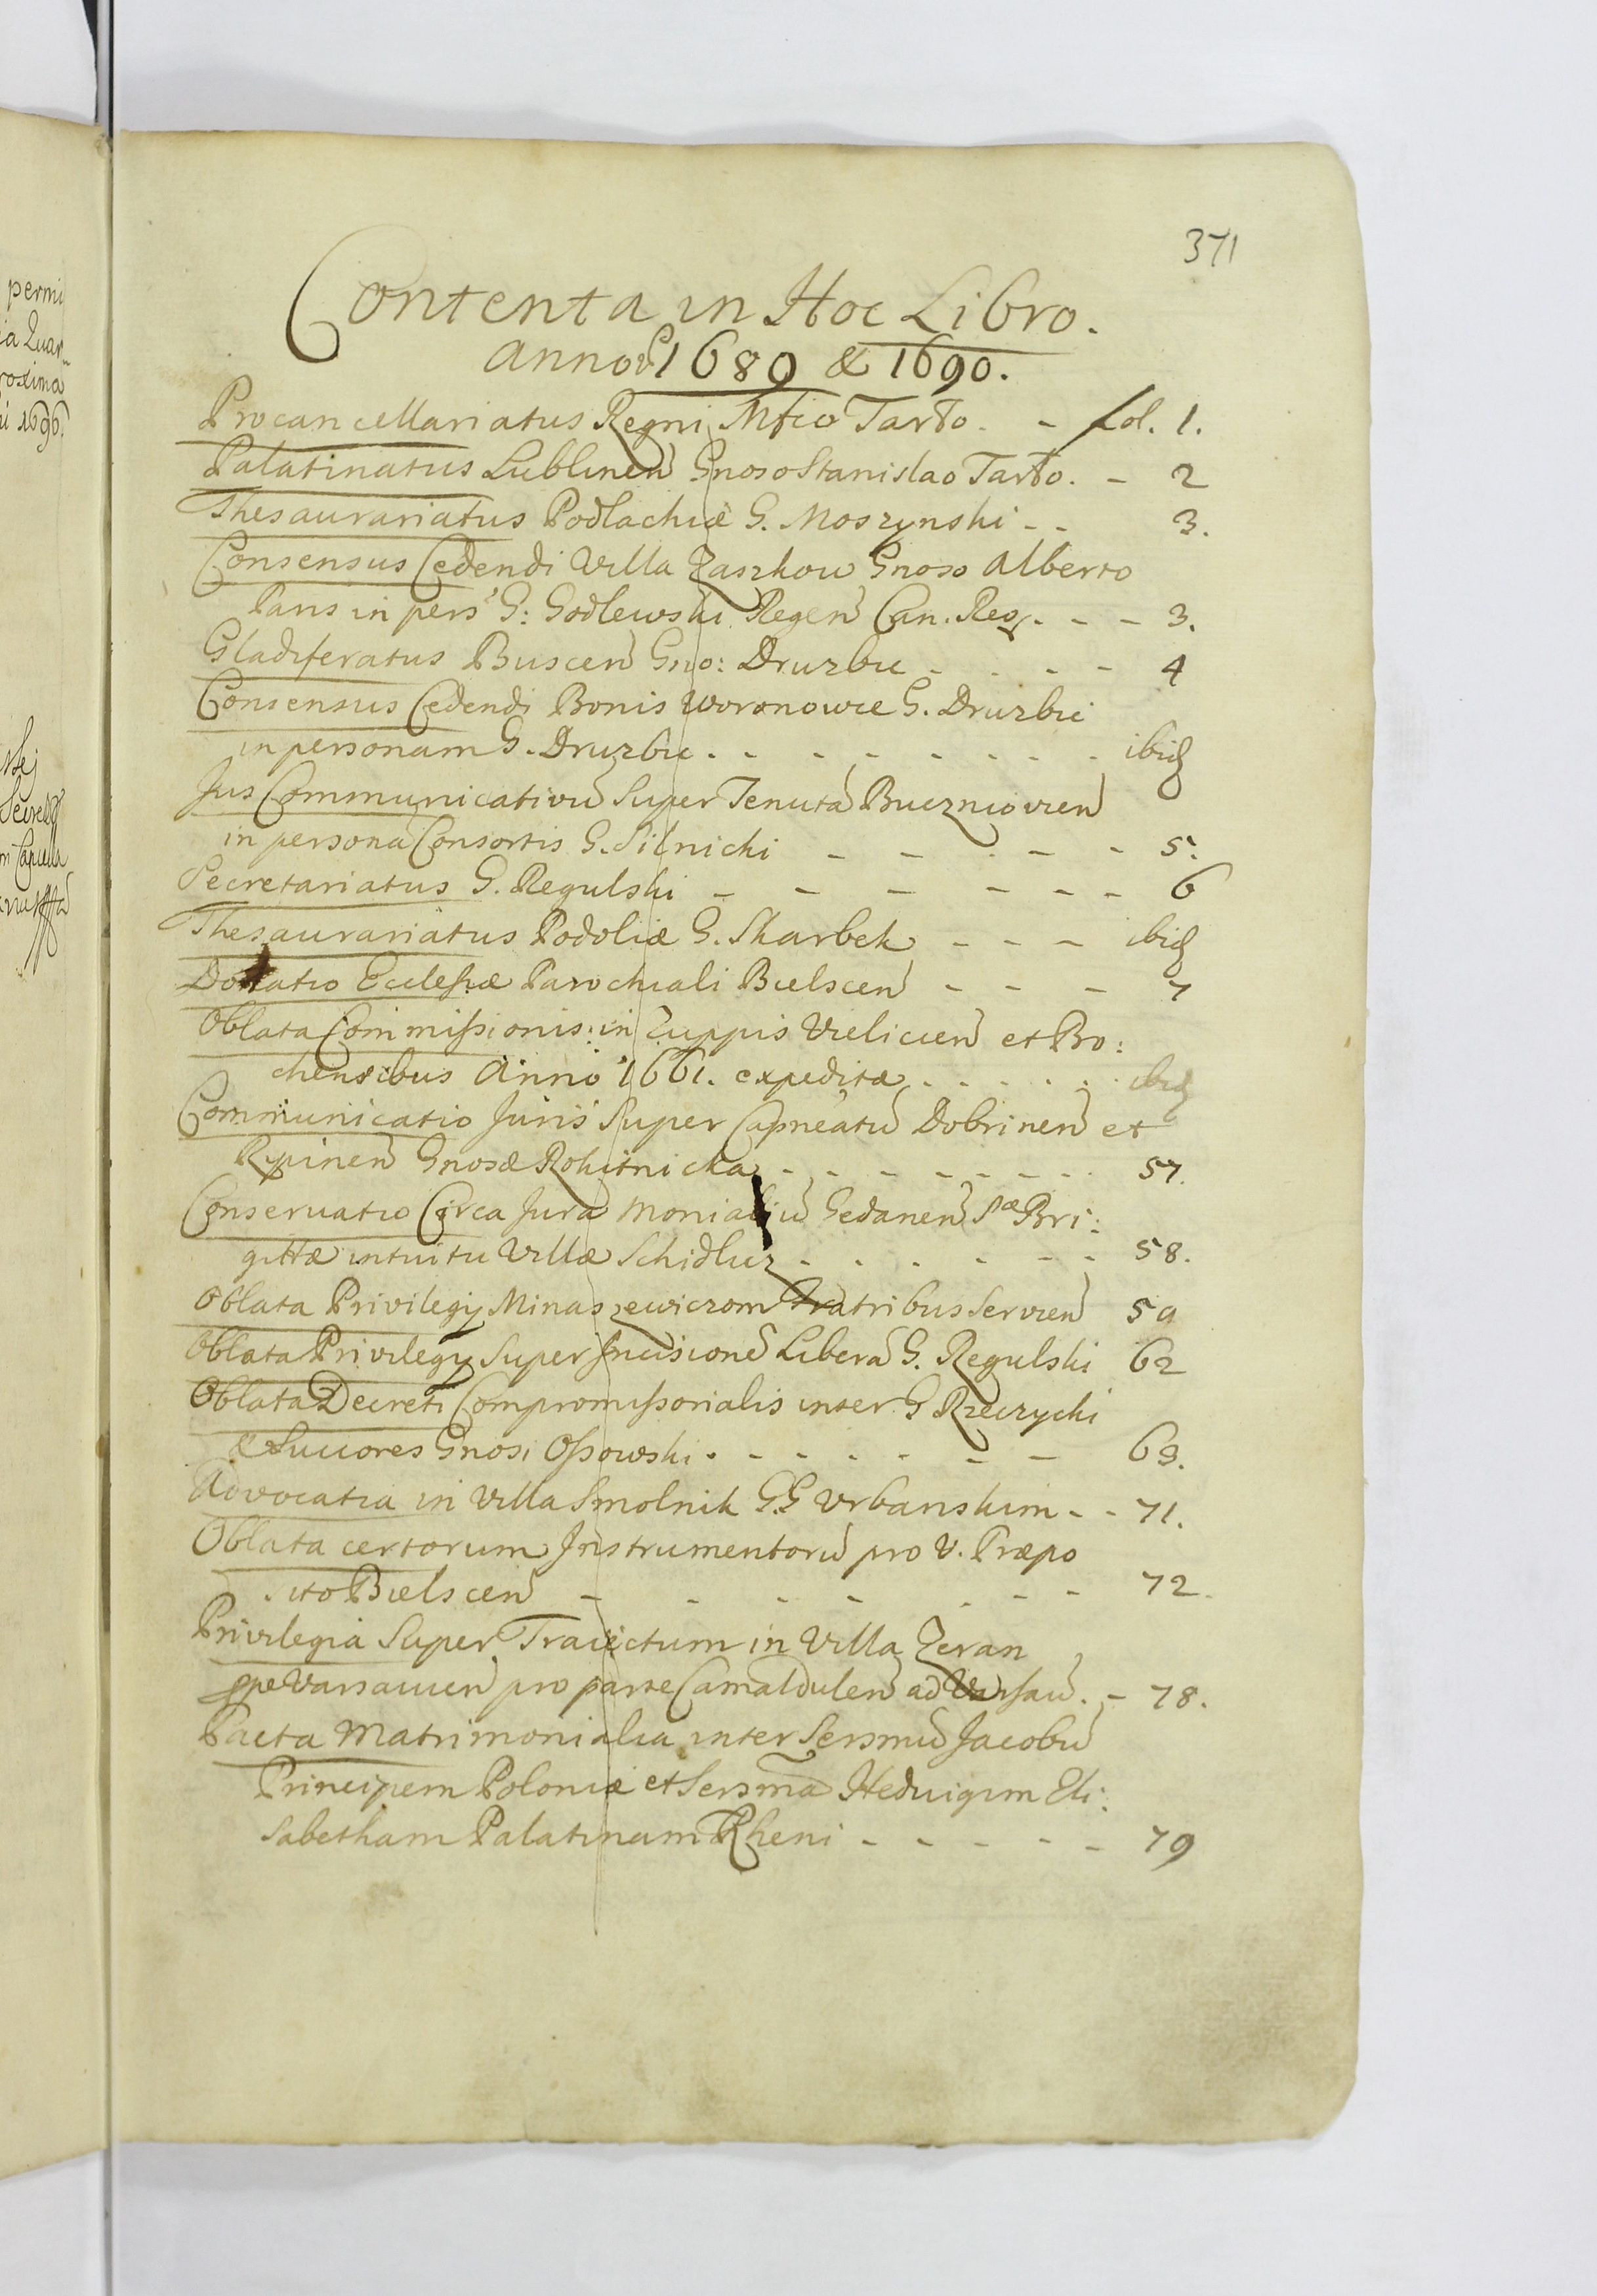 permi
ia Quar
roxima
ii 1696.
Secret
371
Contenta in Hoc Libro.
Annor 1689 & 1690.
Procancellariatus Regni Mfico Tarło. - fol. 1.
Palatinatus Lublinen Gnoso Stanislao Tarło. - 2
Thesaurariatus Podlachiæ G. Moszynski - - 3.
Consensus Cedendi Villa Zaszkow Gnoso Alberto
Paris in pers G: Godlewski Regen Can. Reg. - - - 3.
Gladiferatus Buscen Gno: Druzbic - - - - 4
Consensus Cedendi Bonis Woronowce G. Druzbic
in personam G. Druzbic. - - - - - - - ibid
Jus Communicativu Super Tenuta Buczniovien
in persona Consortis G. Silnicki - - - - - 5.
Secretariatus G. Regulski - - - - - - 6
Thesaurariatus Podoliæ G. Skarbek - - - ibid
Donatio Ecclesiæ Parochiali Bielscen - - - 7
Oblata Commissionis in Zuppis Vieliciem et Bo:
chensibus Anno 1661. expeditæ . - - - - - ibid
Communicatio Juris Super Capneatu Dobrinen et
Rypinen Gnosæ Rokitnicka - - - - - - - - 57.
Conservatio Circa Jura Monialiu Gedanen Sæ Bri:
gittæ intuitu Villæ Schidlicz - - - - - - 58.
Oblata Privilegij Minaszewiczom Fratribus Servien 59
Oblata Privilegij Super Incisione Libera G. Regulski 62
Oblata Decreti Compromissorialis inter G Rzeczycki
& Succores Gnosi Ossowski . - - - - - - 63.
Advocatia in Villa Smolnik G.G Vrbanskim - - 71.
Oblata certorum Instrumentoru pro V. Præpo
sito Bielscen - - - - - - - 72.
Privilegia Super Traiectum in Villa Zeran
ppe Varsavien pro parte Camaldulen ad Varsav. - 78.
Pacta Matrimonialia inter Sersmu Jacobu
Principem Poloniæ et Sersma Hedvigim Eli:
sabetham Palatinam Rheni - - - - - 79